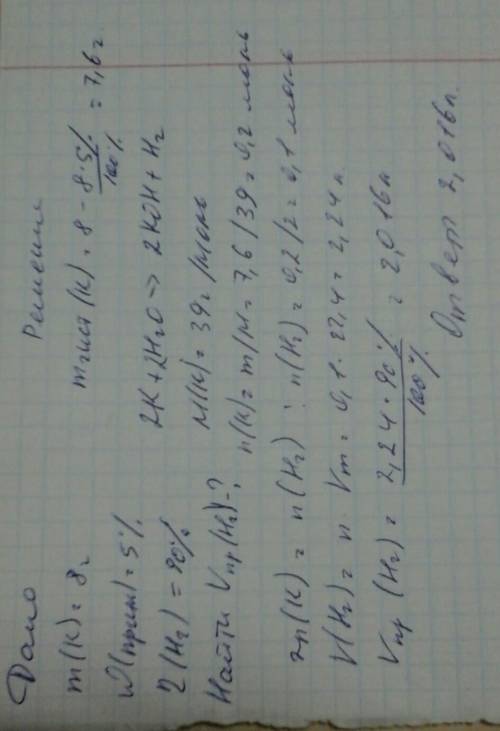 Дано
m(K) = 8г
W(прим) = 5%
η(H₂) = 90%
Найти Vпр(H₂)-?
Решение
mчист(K) = 8 - 8·5%/100% = 7,6г
2K + 2H₂O => 2KOH + H₂
M(K) = 39г/моль
n(K) = m/M = 7,6/39 = 0,2 моль
2n(K) = n(H₂) : n(H₂) = 0,2/2 = 0,1 моль
V(H₂) = n · Vm = 0,1 · 22,4 = 2,24 л
Vпр(H₂) = 2,24·90%/100% = 2,016л
Ответ 2,016л.